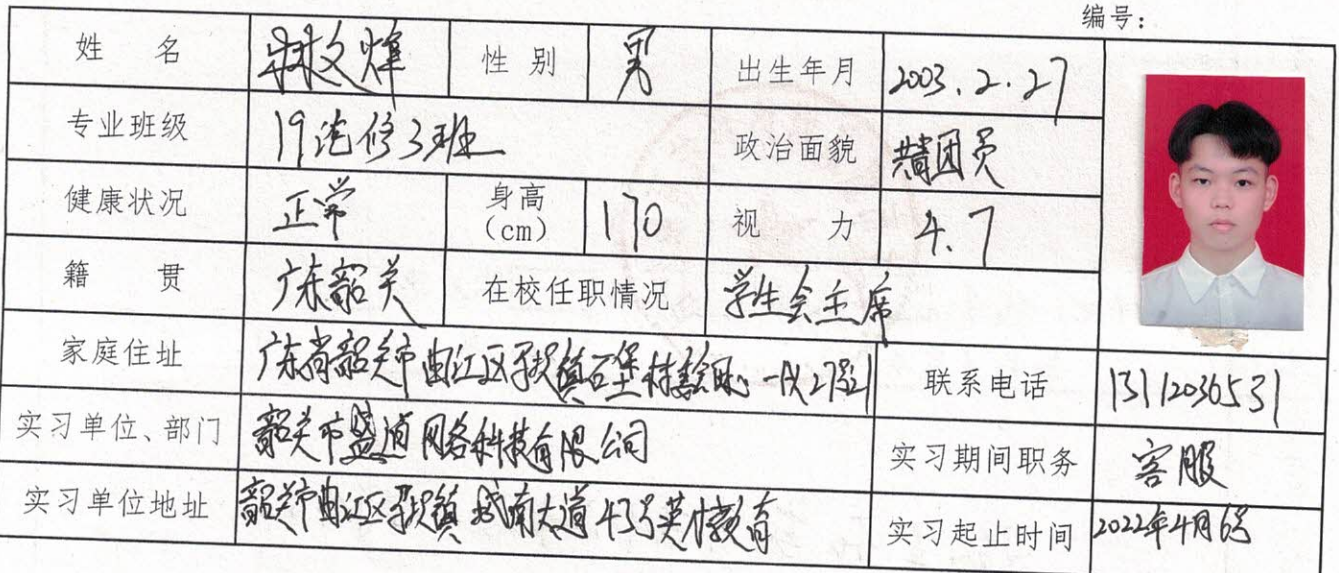 编号：
姓 名 林文烽 性 别 男 出生年月 2003.2.27
专业班级 19汽修3班 政治面貌 共青团员
健康状况 正常 身高（cm） 170 视 力 4.7
籍 贯 广东韶关 在校任职情况 学生会主席
家庭住址 广东省韶关市曲江区马坝镇石堡村 27号
联系电话 13112036531
实习单位、部门 韶关市盛 网络科技有限公司 实习期间职务 客服
实习单位地址 韶关市曲江区马坝镇城南大道43号英才教育 实习起止时间 2022年4月6号